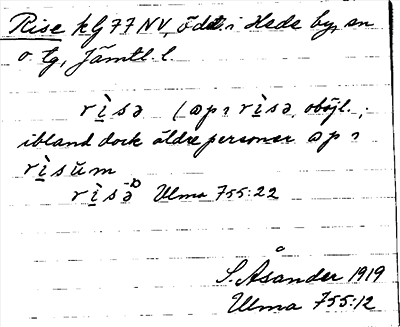 Rise kg 77 NV, ödet. i Hede by, sn
o tg, Jämtl. l.
rìsə (ɷp₂ rìsə, oböjl.;
ibland dock äldre personer ɷp₂
rìsŭm
rìsə Ulma 755:22
S. Åsander 1919
Ulma 755:12